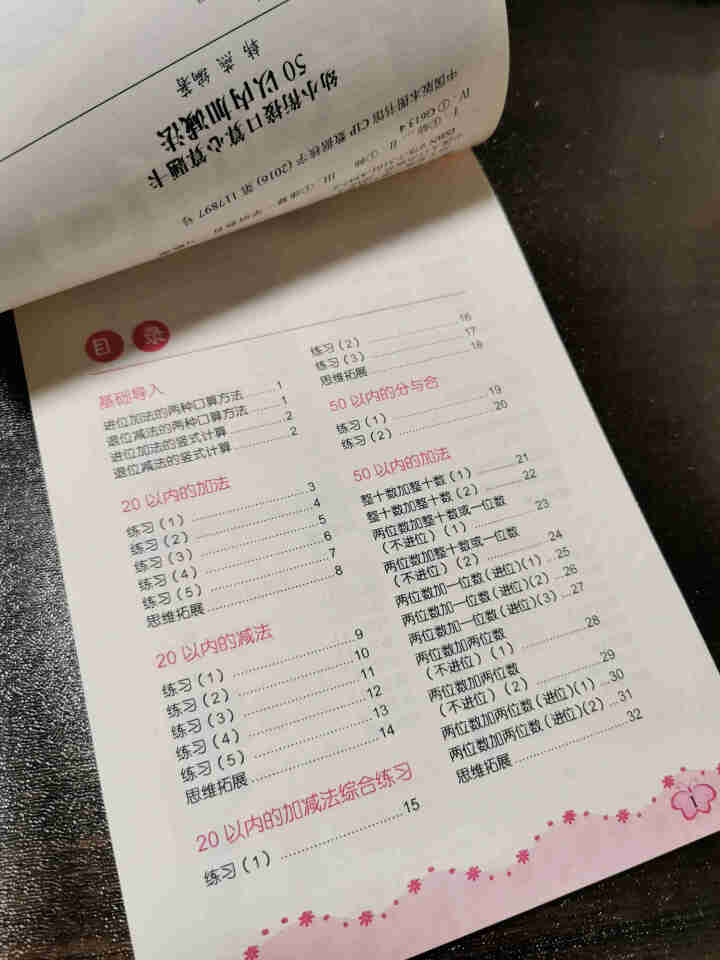 幼小衔接口算心算题卡
50以内加减法
韩燕 编著
中国版本图书馆CIP数据核字（2016）第117897号
目录
基础导入
进位加法的两种口算方法 1
退位减法的两种口算方法 1
进位加法的竖式计算 2
退位减法的竖式计算 2
20以内的加法
练习（1） 3
练习（2） 4
练习（3） 5
练习（4） 6
练习（5） 7
思维拓展 8
20以内的减法
练习（1） 9
练习（2） 10
练习（3） 11
练习（4） 12
练习（5） 13
思维拓展 14
20以内的加减法综合练习
练习（1） 15
练习（2） 16
练习（3） 17
思维拓展 18
50以内的分与合
练习（1） 19
练习（2） 20
50以内的加法
整十数加整十数（1） 21
整十数加整十数（2） 22
两位数加整十数或一位数
（不进位）（1） 23
两位数加整十数或一位数
（不进位）（2） 24
两位数加一位数（进位）（1） 25
两位数加一位数（进位）（2） 26
两位数加一位数（进位）（3） 27
两位数加两位数
（不进位）（1） 28
两位数加两位数
（不进位）（2） 29
两位数加两位数（进位）（1） 30
两位数加两位数（进位）（2） 31
思维拓展 32
1